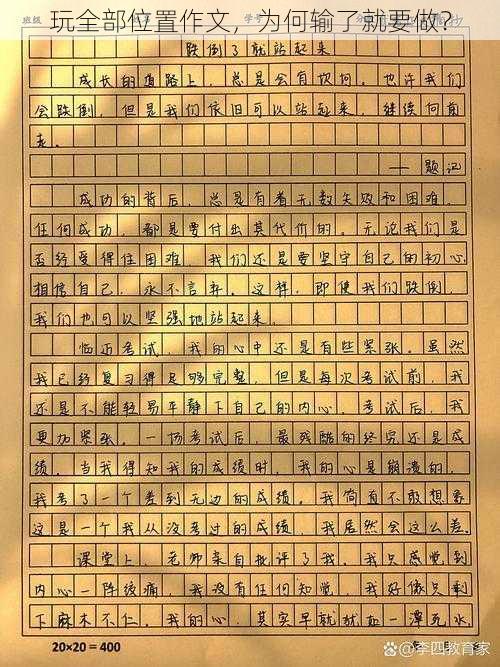 玩全部位置作文，为何输了就要做？
班级
学号
跌倒了就站起来
成长的道路上，总会有坎坷。也许我们
会跌倒，但是我们依旧可以站起来，继续向前
走。
——题记
成功的背后，总是有着无数失败和困难。
任何成功，都是要付出其代价的。无论我们是
否经受得住困难，我们还是要坚守自己的初心，
相信自己，永不言弃。这样，即使我们跌倒，
我们也可以坚强地站起来。
临近考试，我的心中还是有些紧张。虽然
我已经复习得足够完整，但是每次考试前，我
还是不能轻易平静下自己的内心。考试后，我
更加紧张。一场考试后，最残酷的终究还是成
绩。当我得知我的成绩时，我的心是崩溃的。
我考了一个差到无边的成绩。我简直不敢想象
这是一个我从没考过的成绩，我居然会这么差。
课堂上，老师亲自批评了我。我只感觉到
内心一阵绞痛，我没有任何知觉，我好像只剩
下麻木不仁。我的心，其实早就犹如一潭死水
20×20=400
@李四教育家